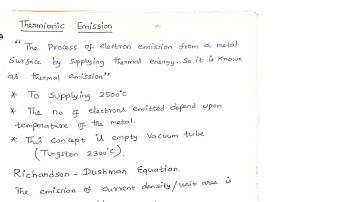 Thermionic Emission
"The Process of electron emission from a metal
Surface by supplying thermal energy. So it is known
as thermal emission"
* To Supplying 2500°C
* The no of electrons emitted depend upon
temperature of the metal.
* This concept is empty vacuum tube
(Tungsten 2300°C).
Richardson - Dushman Equation.
The emission of current density/unit area is